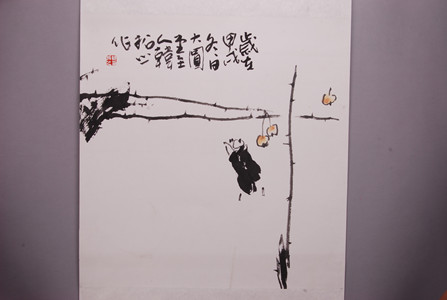 歲在
甲戌
冬日
大圓
主
人韓
作